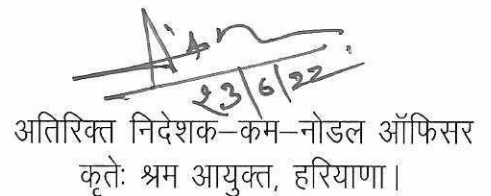 23/6/22
अतिरिक्त निदेशक–कम–नोडल ऑफिसर
कृतेः श्रम आयुक्त, हरियाणा।